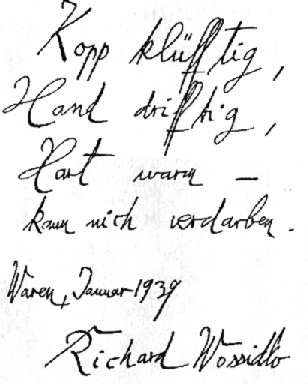 Kopp klüftig,
Hand driftig,
Hart warm –
kann nich verdarben.
Waren, Januar 1939
Richard Wossidlo